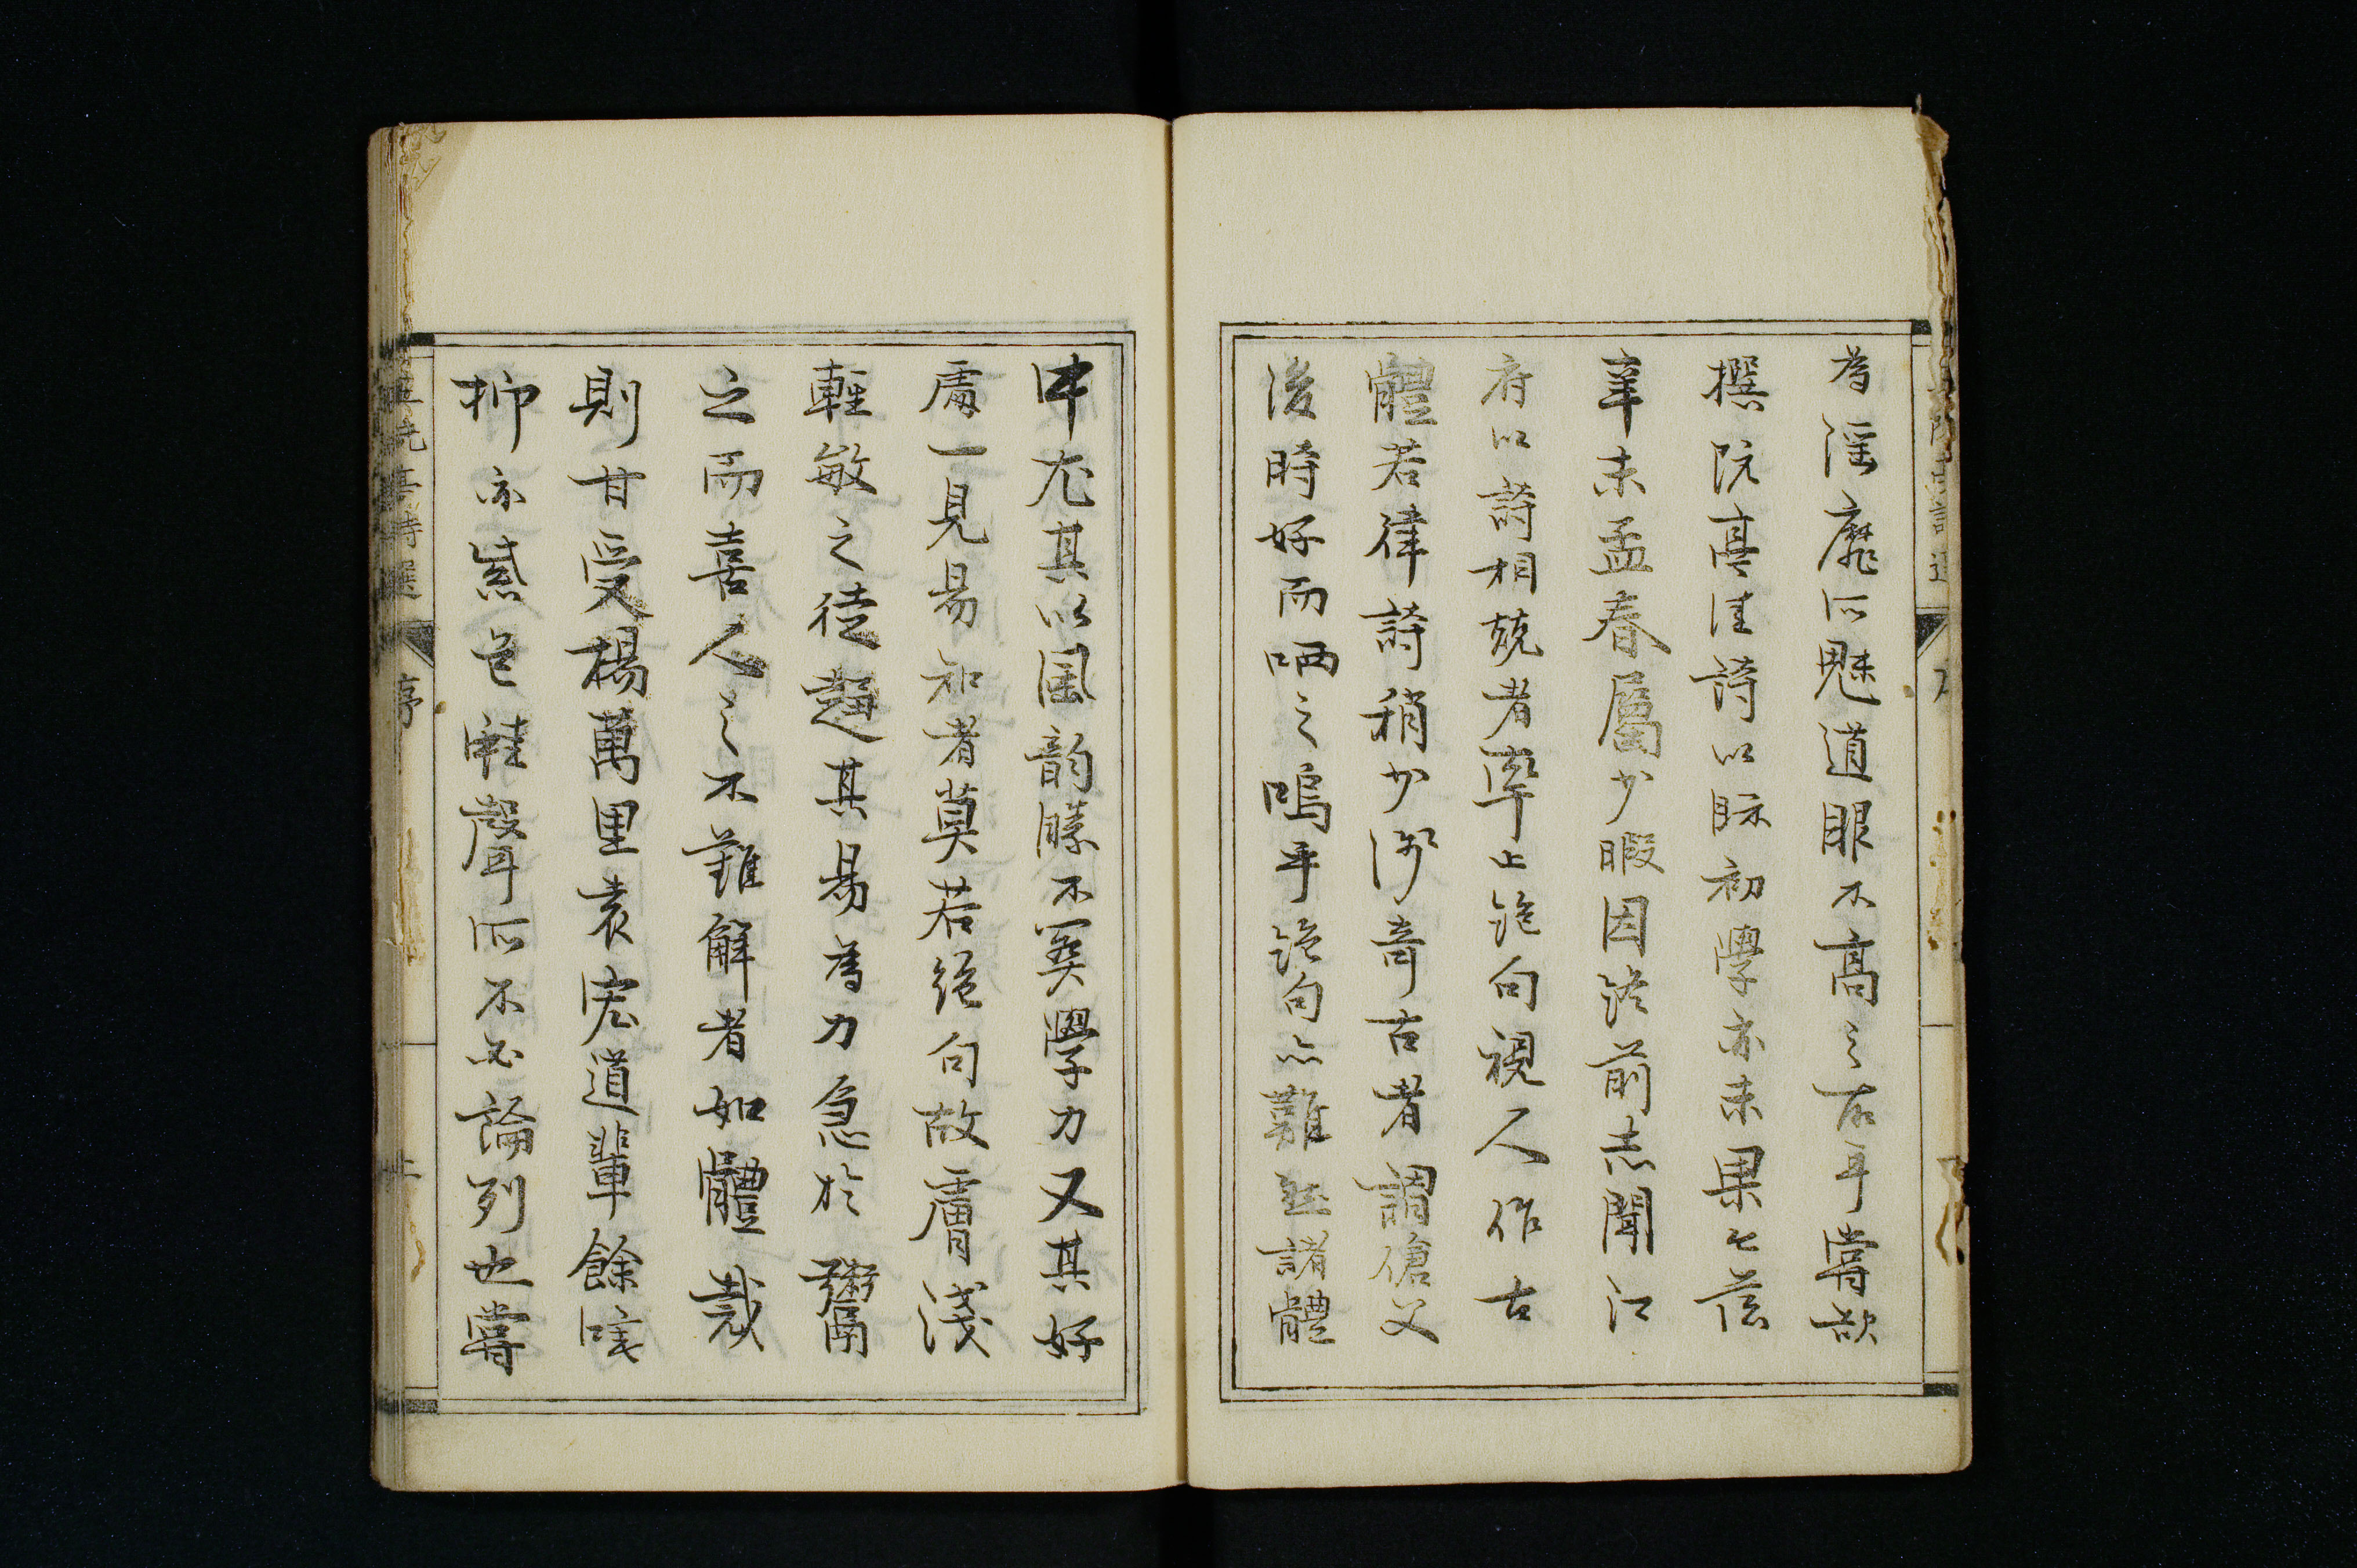 為淫靡所魅道眼不高之故乎嘗欲
撰阮亭佳詩以貽初學亦未果也茲
辛未孟春屬少暇因終前志聞江
府以詩相競者率上絕句視人作古
體若律詩稍少涉奇古者謂傖父
後時好而哂之嗚乎絕句之難
諸體
中尤其以風韻勝不關學力又其好
處一見易知者莫若絕句故膚淺
輕敏之徒趨其易為力急於鬻
之而喜人之不難解者如體裁
則甘受楊萬里袁宏道輩餘唾
抑亦紫色蛙聲所不必論列也嘗
王阮亭詩選
序